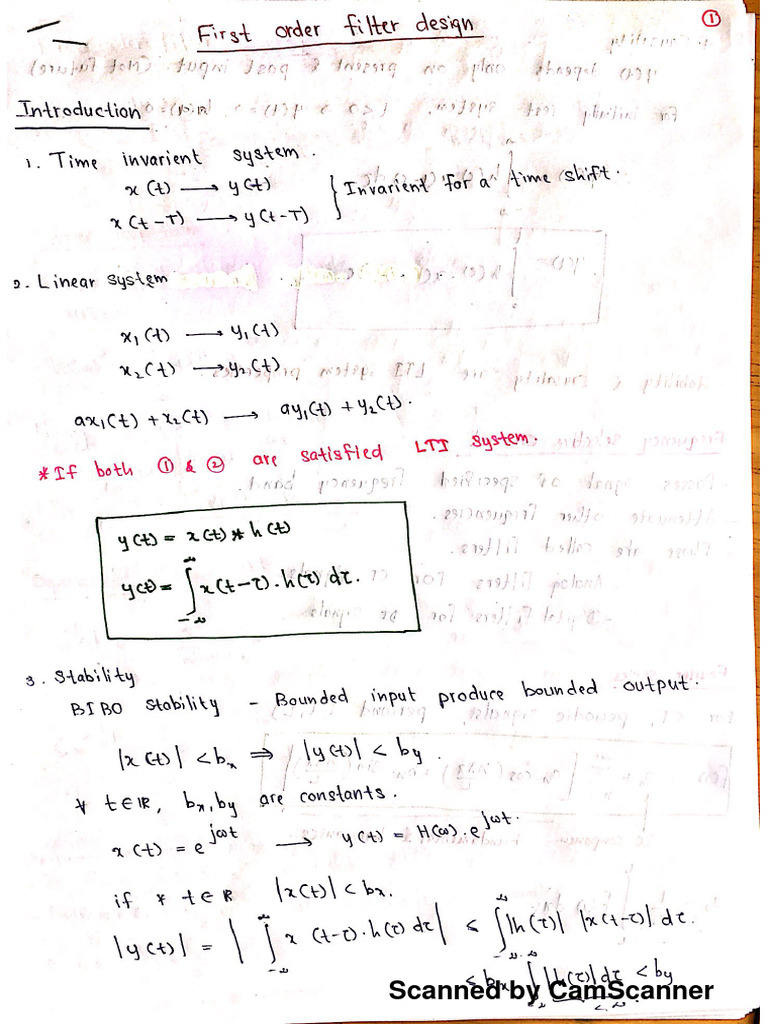 ①
First order filter design
Introduction
1. Time invarient system.
x(t) ⟶ y(t)
x(t-T) ⟶ y(t-T)
} Invarient for a time shift.
2. Linear system
x₁(t) ⟶ y₁(t)
x₂(t) ⟶ y₂(t)
ax₁(t) + x₂(t) ⟶ ay₁(t) + y₂(t).
*If both ① & ② are satisfied LTI system.
y(t) = x(t) * h(t)
y(t) = ∫_{-∞}^{∞} x(t-τ).h(τ) dτ.
3. Stability
BIBO stability - Bounded input produce bounded output.
|x(t)| < bₓ ⇒ |y(t)| < by.
∀ t∈ℝ, bₓ, by are constants.
x(t) = e^{jωt} ⟶ y(t) = H(ω).e^{jωt}.
if ∀ t∈ℝ |x(t)| < bx.
|y(t)| = |∫_{-∞}^{∞} x(t-τ).h(τ) dτ| ≤ ∫_{-∞}^{∞} |h(τ)| |x(t-τ)| dτ.
≤ bₓ ∫_{-∞}^{∞} |h(τ)| dτ < by
< ∞
Scanned by CamScanner